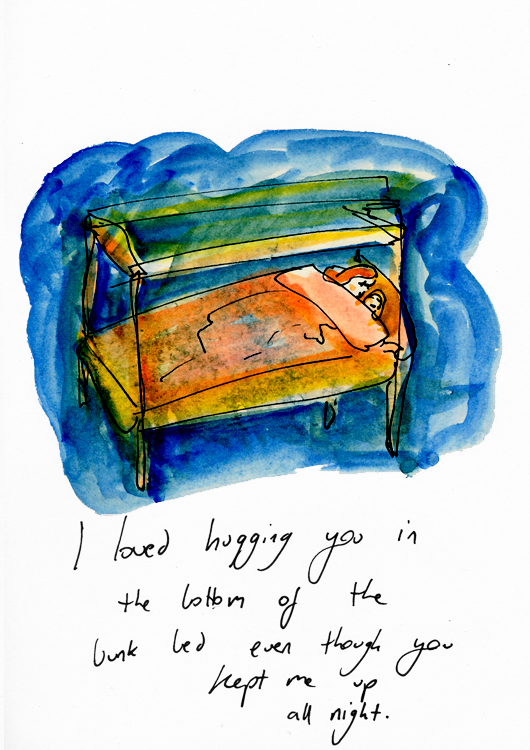 I loved hugging you in
the bottom of the
bunk bed even though you
kept me up
all night.